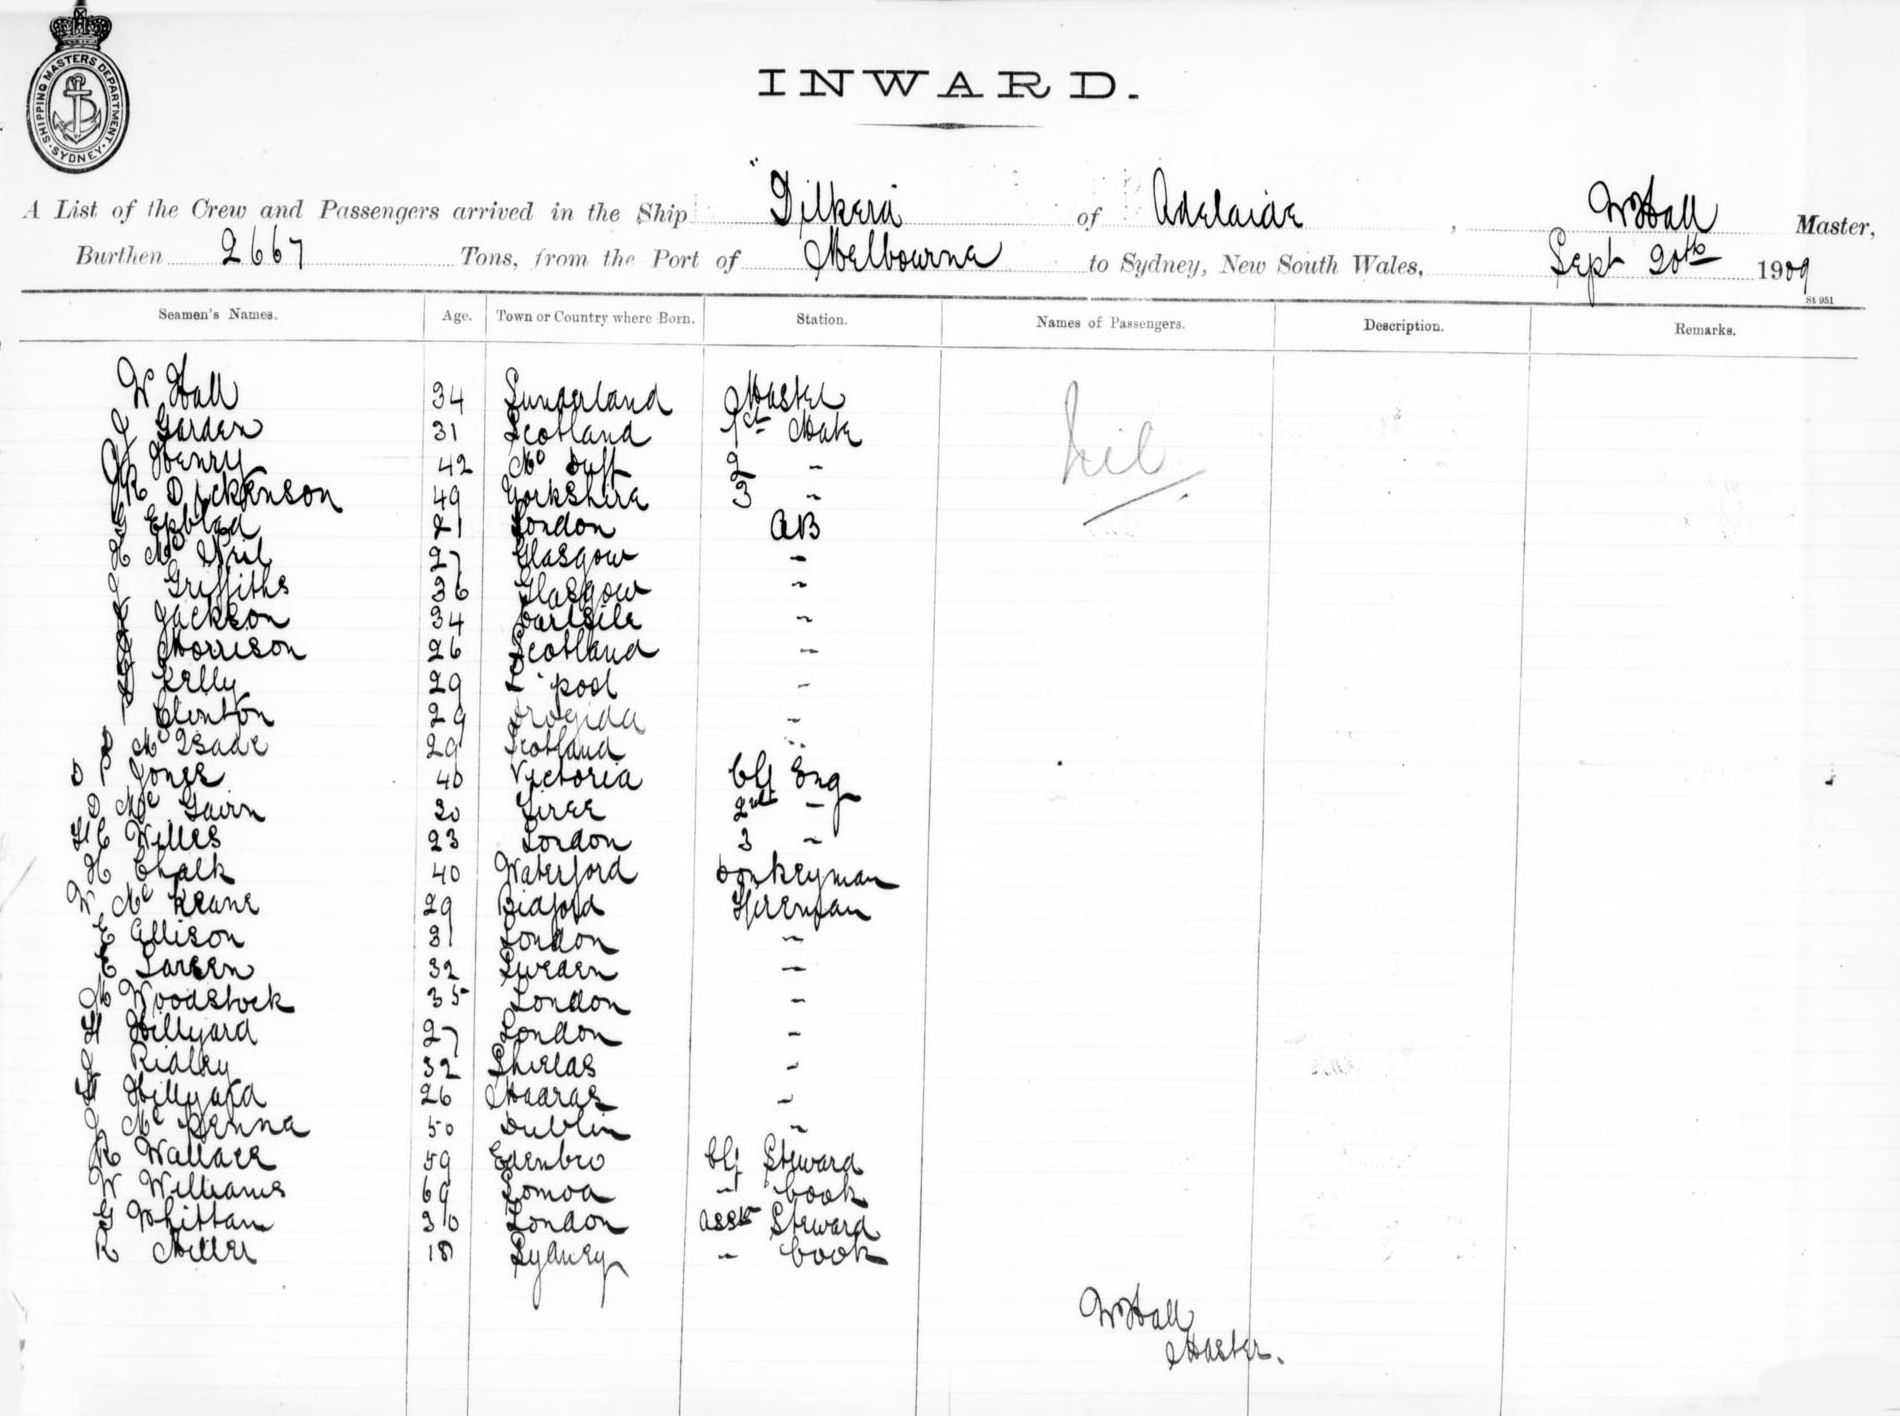 SHIPPING MASTERS DEPARTMENT. SYDNEY.
INWARD.
A List of the Crew and Passengers arrived in the Ship "Dilkera of Adelaide, W Hall Master,
Burthen 2667 Tons, from the Port of Melbourne to Sydney, New South Wales, Sept 20th 1909
St 951
Seamen's Names. Age. Town or Country where Born. Station. Names of Passengers. Description. Remarks.
W Hall 34 Sunderland Master
J Garden 31 Scotland 1st Mate nil
Henry 42 Mc Duff 2 "
R Dickenson 49 Yorkshire 3 "
G 21 London AB
H Mc Neil 27 Glasgow "
J Griffiths 36 Glasgow "
Jackson 34 Carlsile "
Morrison 26 Scotland "
Kelly 29 L'pool "
P Clinton 29 "
D Mc Isaac 29 Scotland "
D P Jones 40 Victoria Chf Eng
D Mc Gavin 30 Tiree 2nd "
H C Willes 23 London 3 "
H Chalk 40 Waterford Donkeyman
W Mc Keane 29 Bidford Fireman
E Allison 31 London "
E Larsen 32 Sweden "
M Woodstock 35 London "
H Hillyard 27 London "
J Ridley 32 Shields "
H Hillyard 26 Madras "
J Mc Kenna 50 Dublin "
R Wallace 59 Edenbro Chf Steward
W Williams 69 Somoa " Cook
G Whittam 30 London Asst Steward
R Miller 18 Sydney " Cook
W Hall
Master.